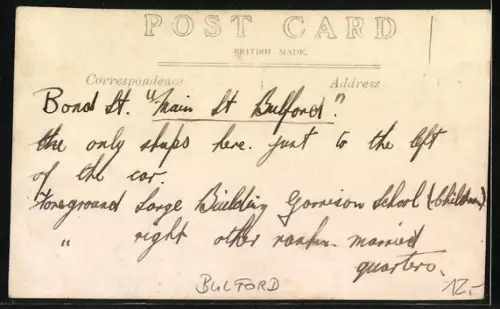 POST CARD
BRITISH MADE.
Correspondence Address
Bond St. "Main St Bulford."
the only shops here. just to the left
of the car.
Foreground Large Building Garrison School (Children)
" right other ranks married
quarters.
BULFORD 12,-